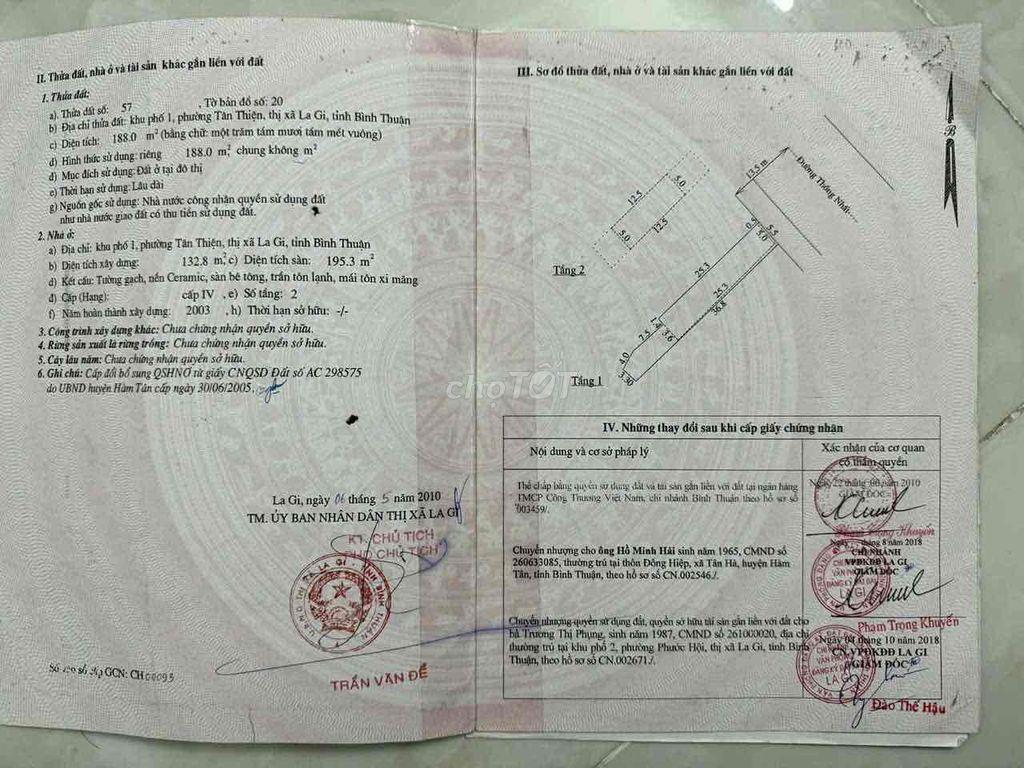 II. Thửa đất, nhà ở và tài sản khác gắn liền với đất
1. Thửa đất:
a). Thửa đất số: 57 , Tờ bản đồ số: 20
b) Địa chỉ thửa đất: khu phố 1, phường Tân Thiện, thị xã La Gi, tỉnh Bình Thuận
c) Diện tích: 188.0 m² (bằng chữ: một trăm tám mươi tám mét vuông)
d) Hình thức sử dụng: riêng 188.0 m², chung không m²
đ) Mục đích sử dụng: Đất ở tại đô thị
e) Thời hạn sử dụng: Lâu dài
g) Nguồn gốc sử dụng: Nhà nước công nhận quyền sử dụng đất
như nhà nước giao đất có thu tiền sử dụng đất.
2. Nhà ở:
a) Địa chỉ: khu phố 1, phường Tân Thiện, thị xã La Gi, tỉnh Bình Thuận
b) Diện tích xây dựng: 132.8 m², c) Diện tích sàn: 195.3 m²
d) Kết cấu: Tường gạch, nền Ceramic, sàn bê tông, trần tôn lạnh, mái tôn xi măng
đ) Cấp (Hạng): cấp IV , e) Số tầng: 2
f) Năm hoàn thành xây dựng: 2003 , h) Thời hạn sở hữu: -/-
3. Công trình xây dựng khác: Chưa chứng nhận quyền sở hữu.
4. Rừng sản xuất là rừng trồng: Chưa chứng nhận quyền sở hữu.
5. Cây lâu năm: Chưa chứng nhận quyền sở hữu.
6. Ghi chú: Cấp đổi bổ sung QSHNƠ từ giấy CNQSD Đất số AC 298575
do UBND huyện Hàm Tân cấp ngày 30/06/2005.
La Gi, ngày 06 tháng 5 năm 2010
TM. ỦY BAN NHÂN DÂN THỊ XÃ LA GI
KT. CHỦ TỊCH
PHÓ CHỦ TỊCH
U.B.N.D THỊ XÃ LA GI - TỈNH BÌNH THUẬN
TRẦN VĂN ĐỂ
Số vào sổ cấp GCN: CH00093
III. Sơ đồ thửa đất, nhà ở và tài sản khác gắn liền với đất
B
13.5 m
Đường Thống Nhất
12.5
5.0
5.0
12.5
Tầng 2
0.5
5.5
5.0
25.3
25.3
36.8
1.4
3.6
7.5
4.0
3.30
Tầng 1
choTỐT
IV. Những thay đổi sau khi cấp giấy chứng nhận
Nội dung và cơ sở pháp lý
Xác nhận của cơ quan
có thẩm quyền
Thế chấp bằng quyền sử dụng đất và tài sản gắn liền với đất tại ngân hàng
TMCP Công Thương Việt Nam, chi nhánh Bình Thuận theo hồ sơ số
003459/.
Ngày 22 tháng 06 năm 2010
GIÁM ĐỐC
Phạm Trọng Khuyến
Chuyển nhượng cho ông Hồ Minh Hải sinh năm 1965, CMND số
260633085, thường trú tại thôn Đông Hiệp, xã Tân Hà, huyện Hàm
Tân, tỉnh Bình Thuận, theo hồ sơ số CN.002546/.
Ngày tháng 8 năm 2018
CHI NHÁNH
VPĐKĐĐ LA GI
GIÁM ĐỐC
Phạm Trọng Khuyến
Chuyển nhượng quyền sử dụng đất, quyền sở hữu tài sản gắn liền với đất cho
bà Trương Thị Phụng, sinh năm 1987, CMND số 261000020, địa chỉ
thường trú tại khu phố 2, phường Phước Hội, thị xã La Gi, tỉnh Bình
Thuận, theo hồ sơ số CN.002671/.
Ngày 04 tháng 10 năm 2018
CN.VPĐKĐĐ LA GI
GIÁM ĐỐC
Đào Thế Hậu